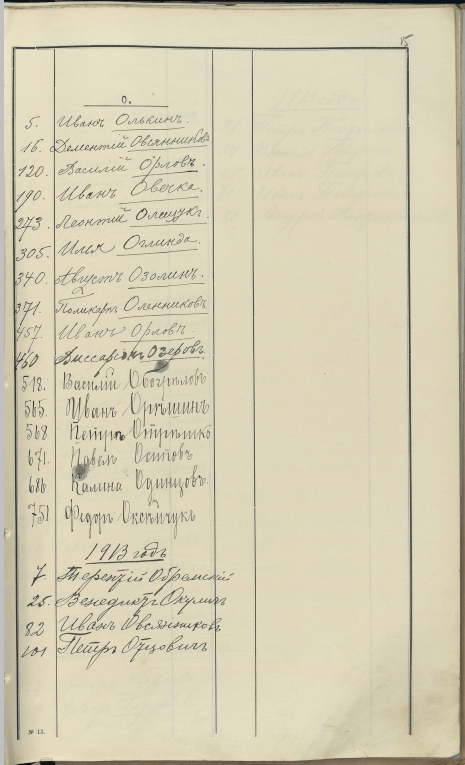 15
О.
5. Иванъ Олькинъ.
16. Дементій Овсянниковъ
120. Василій Орловъ.
190. Иванъ Овечка.
273. Леонтій Олещукъ.
305. Илья Оглинда.
340. Августъ Озолинъ.
371. Поликарпъ Оленниковъ.
457. Иванъ Орловъ.
460 Виссаріонъ Озеровъ.
518. Василій
565. Иванъ Орѣшинъ
568 Петръ Отрѣшко
671. Павелъ Осиповъ
686 Калина Одинцовъ.
751 Федоръ Оксенчукъ
1913 годъ
7. Терентій Обремскій
25. Венедиктъ Окуличъ
82 Иванъ Овсянниковъ
101 Петръ Отцовичъ
№ 13.